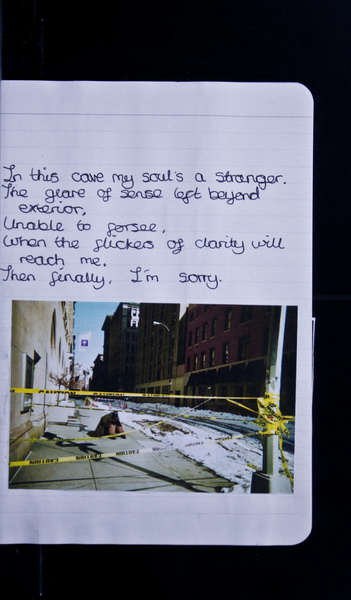 In this cave my soul's a stranger.
The glare of sense left beyond
exterior,
Unable to forsee,
When the flickers of clarity will
reach me.
Then finally, I'm sorry.
CAUTION CAUTION CAUTION
CAUTION CAUTION CAUTION